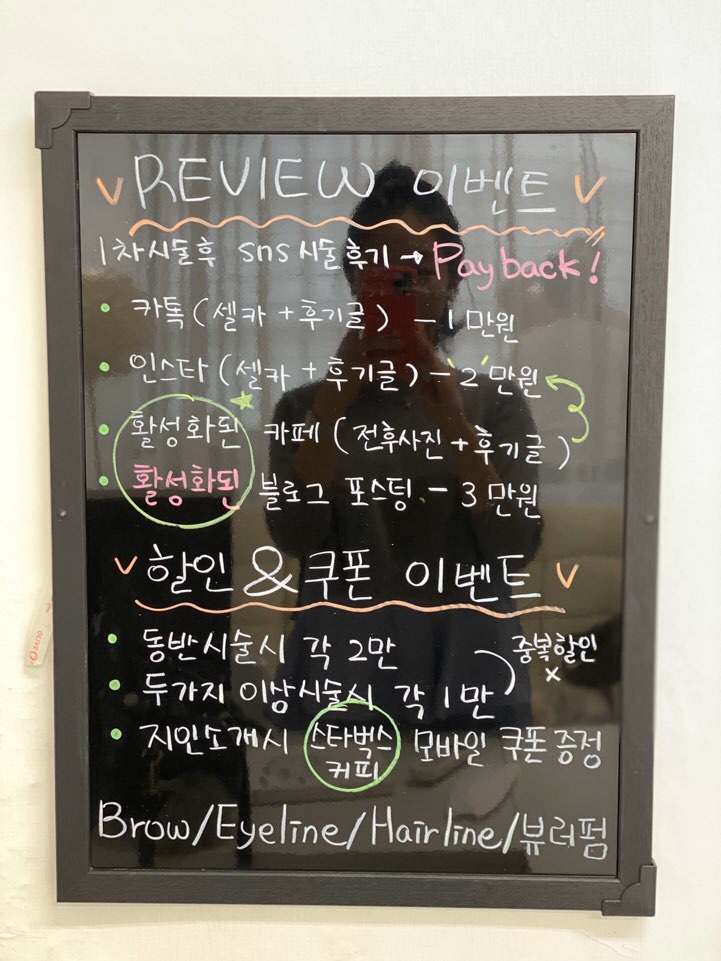 REVIEW 이벤트
1차시술후 sns 시술후기 → Pay back!
카톡 (셀카 + 후기글) - 1만원
인스타 (셀카 + 후기글) - '2'만원
활성화된 카페 (전후사진 + 후기글)
활성화된 블로그 포스팅 - 3만원
할인 & 쿠폰 이벤트
동반시술시 각 2만
두가지 이상시술시 각 1만
중복할인 x
지인소개시 스타벅스 커피 모바일 쿠폰 증정
Brow/Eyeline/Hairline/뷰러펌